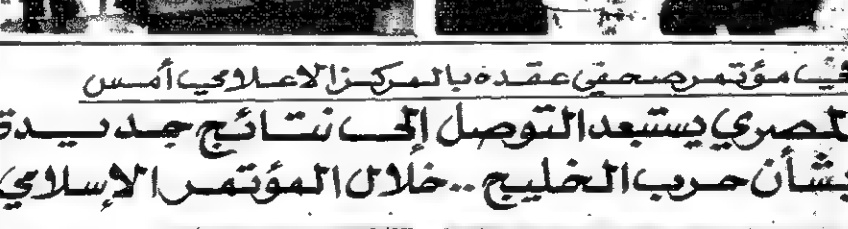 في مؤتمر صحفي عقده بالمركز الاعلامي أمس
المصري يستبعد التوصل إلى نتائج جديدة
بشأن حرب الخليج .. خلال المؤتمر الإسلامي